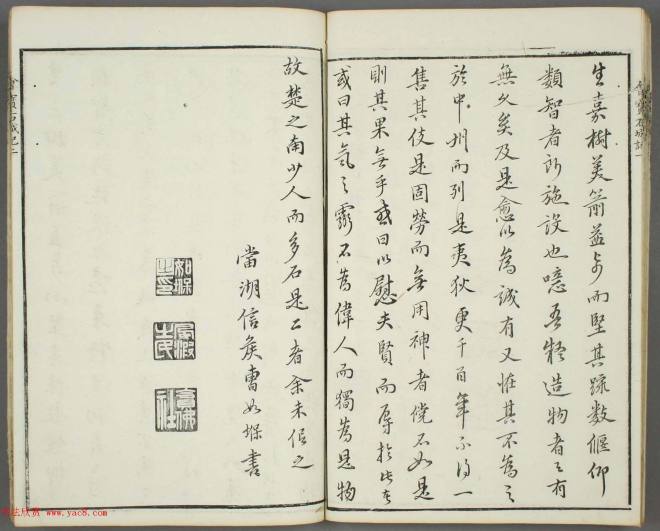 生嘉樹美箭益奇而堅其疏數偃仰
類智者所施設也噫吾疑造物者之有
無久矣及是愈以為誠有又怪其不為之
於中州而列是夷狄更千百年不得一
售其伎是固勞而無用神者儻不如是
則其果無乎或曰以慰夫賢而辱於此者
或曰其氣之靈不為偉人而獨為是物
故楚之南少人而多石是二者余未信之
當湖信矦曹如
書
www.yac8.com